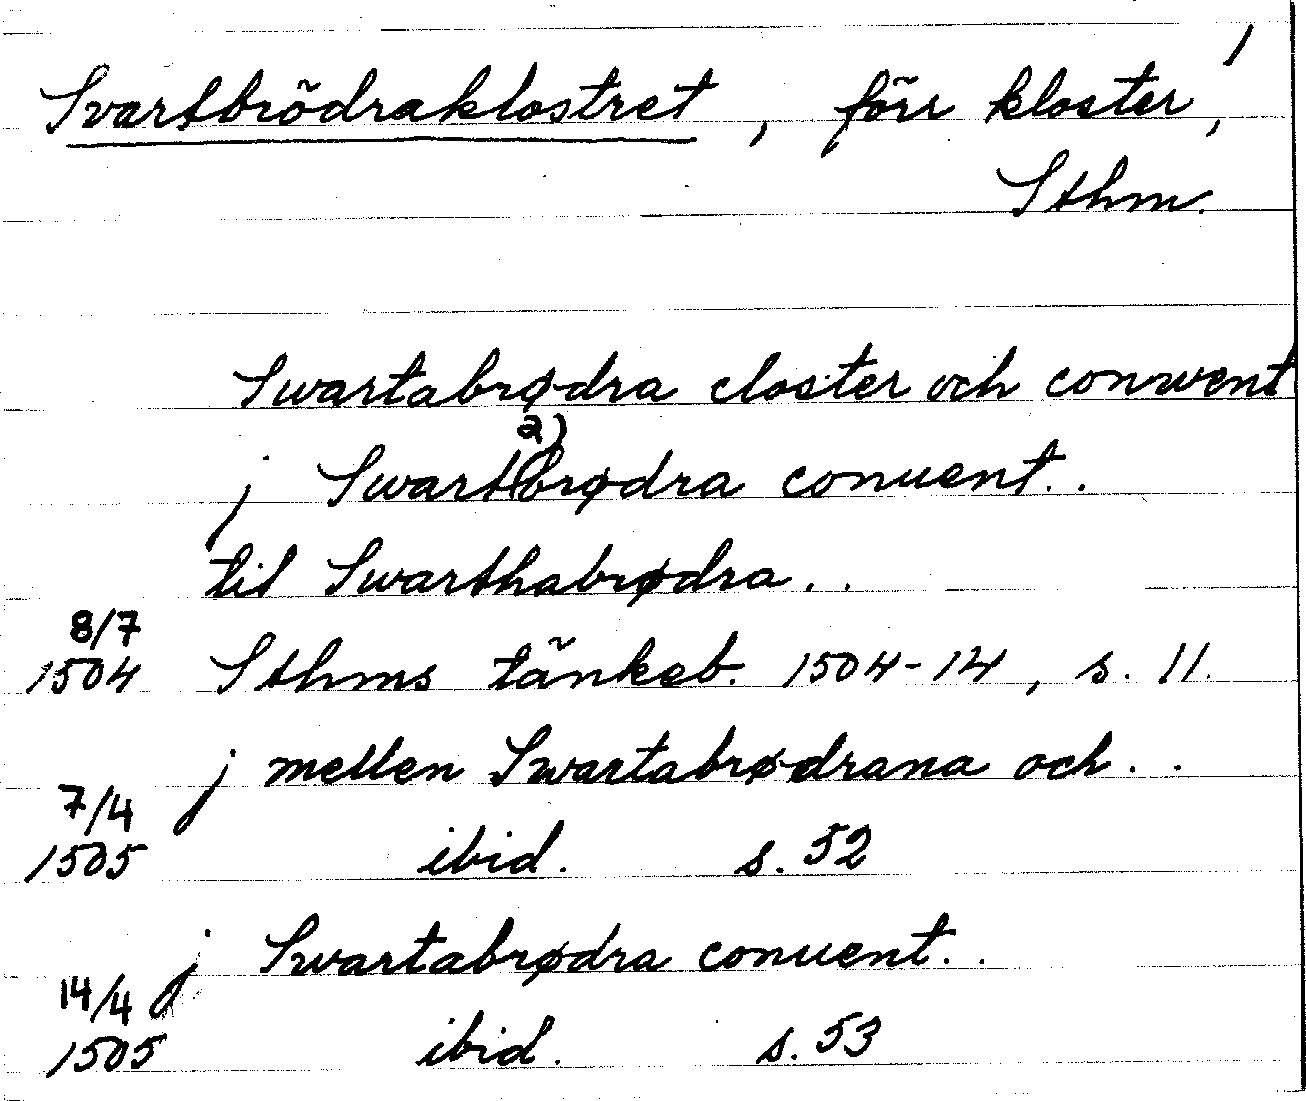 1
Svartbrödraklostret, förr kloster,
Sthm.
Swartabrødra closter och conwent
2)
j Swartbrødra conuent..
til Swarthabrødra..
8/7
1504 Sthms tänkeb. 1504-14, s. 11.
j mellen Swartabrødrana och..
7/4
1505 ibid. s. 52
j Swartabrødra conuent..
14/4
1505 ibid. s. 53